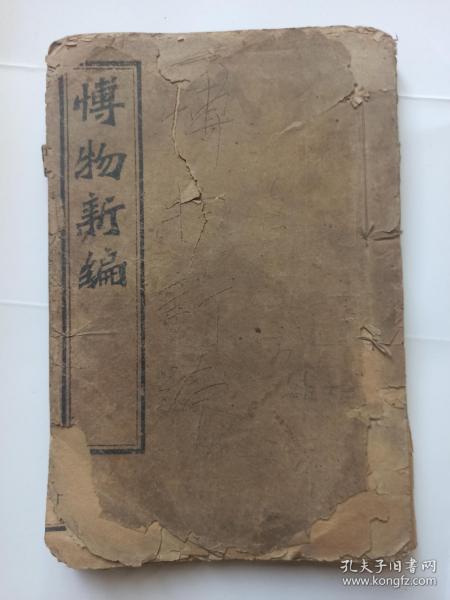 愽物新编
博物新编
孔夫子旧书网
www.kongfz.com